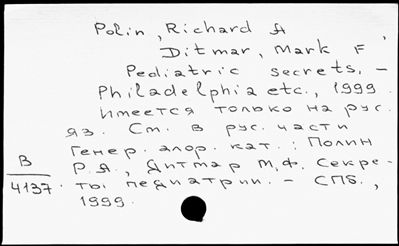 Polin, Richard A,
Ditmar, Mark F
Pediatric secrets. –
Philadelphia etc., 1999.
Имеется только на рус.
яз. См. в рус. части
Генер. алор. кат.: Полин
В Р.А., Дитмар М.Ф. Секре-
4137. ты педиатрии. – СПб.,
1999.